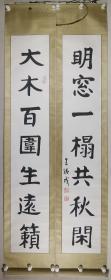 明窓一榻共秋閑
大木百圍生遠籟